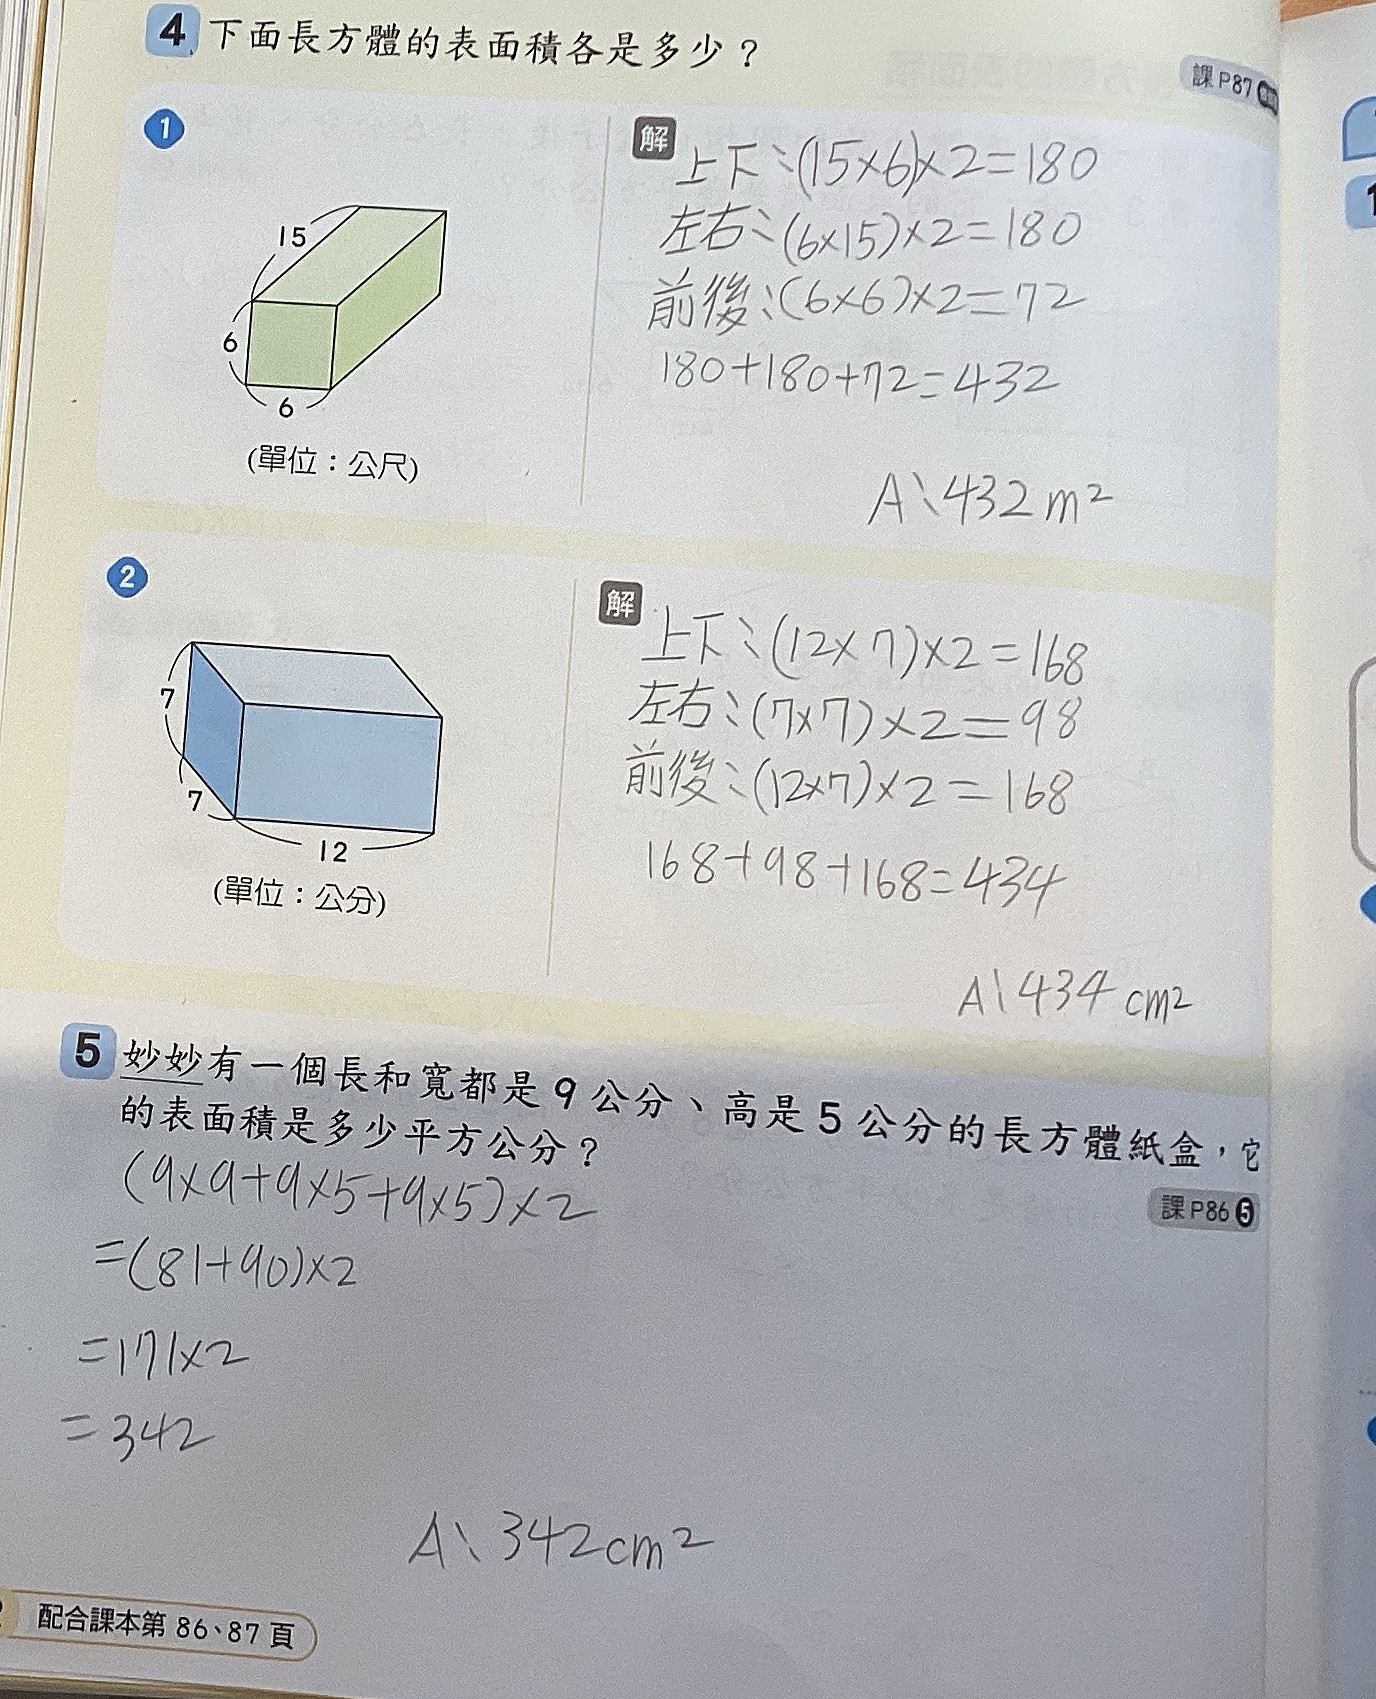 4 下面長方體的表面積各是多少？
課P87
1
15
6
6
(單位：公尺)
解
上下：(15×6)×2=180
左右：(6×15)×2=180
前後：(6×6)×2=72
180+180+72=432
A\432 m²
2
7
7
12
(單位：公分)
解
上下：(12×7)×2=168
左右：(7×7)×2=98
前後：(12×7)×2=168
168+98+168=434
A\434 cm²
5 妙妙有一個長和寬都是9公分、高是5公分的長方體紙盒，它
的表面積是多少平方公分？
課P86 5
(9×9+9×5+9×5)×2
=(81+90)×2
=171×2
=342
A\342cm²
配合課本第 86、87 頁
1